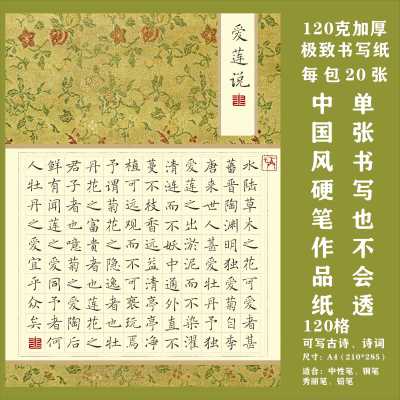 120克加厚
极致书写纸
每包20张
单张书写也不会透
中国风硬笔作品纸
120格
可写古诗、诗词
尺寸：A4（210*285）
适合：中性笔、钢笔
秀丽笔、铅笔
爱莲说
水陆草木之花可爱者甚
蕃晋陶渊明独爱菊自李
唐来世人甚爱牡丹予独
爱莲之出淤泥而不染濯
清涟而不妖中通外直不
蔓不枝香远益清亭亭净
植可远观而不可亵玩焉
予谓菊花之隐逸者也牡
丹花之富贵者也莲花之
君子者也噫菊之爱陶后
鲜有闻莲之爱同予者何
人牡丹之爱宜乎众矣